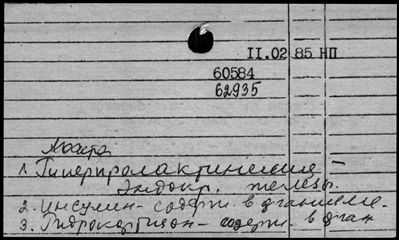 II.02 85 НП
60584
62935
1. Гиперпролактинемия -
эндокр. железы.
2. Инсулин - содерж. в
3. Гидрокортизон - содерж. в